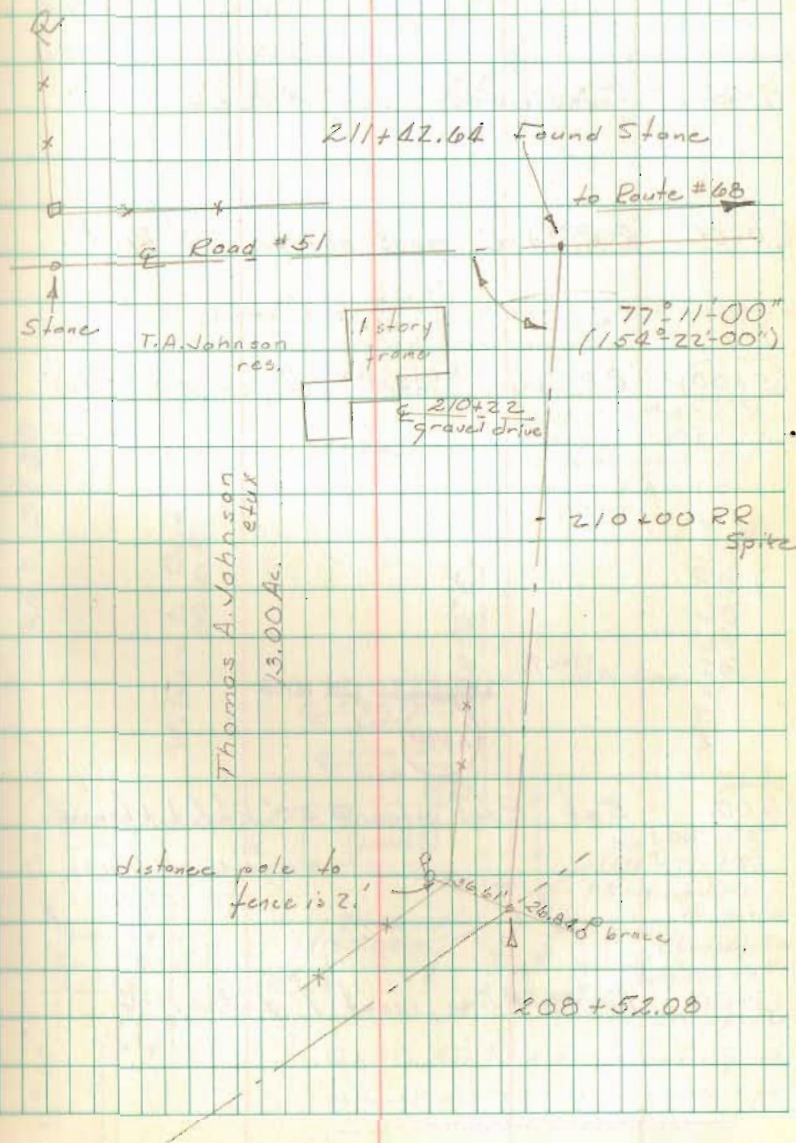 211+42.64 Found Stone
to Route #68
℄ Road #51
Stone
77°-11'-00"
(154°-22'-00")
T.A. Johnson
res.
1 story
frame
℄ 210+22
gravel drive
210+00 RR
Spike
Thomas A. Johnson
etux
13.00 Ac.
distance pole to
fence is 2.'
36.61'
brace
208+52.08